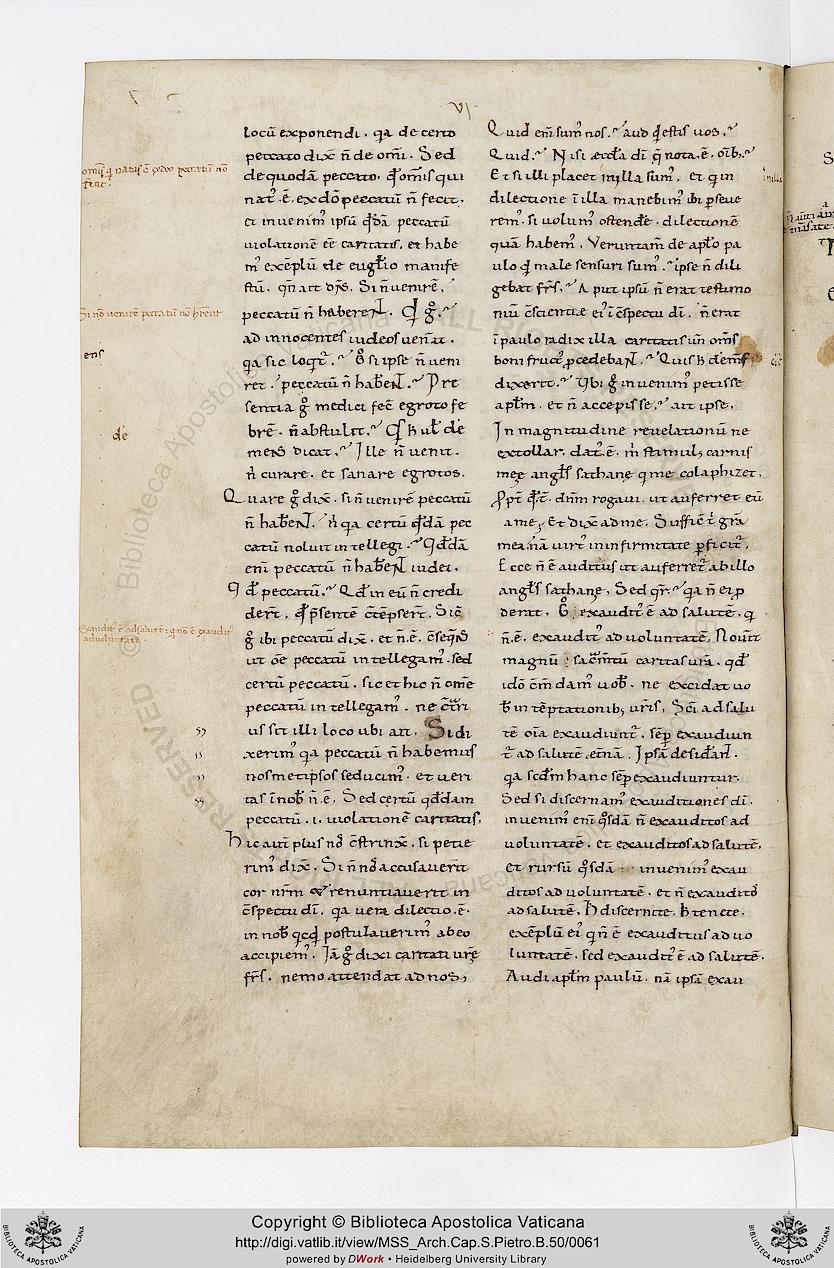 VI
locū exponendi. qa de certo
peccato dix̄ n̄ de om̄i. Sed
de quodā peccato, qd̄ om̄is qui
nat᷒. ē. ex dō peccatū n̄ fecit.
et invenim᷒ ipsū qd̄dā peccatū
violationē eē caritatis. et habe
m᷒ exēplū de euglio manife
stū. qn̄ ait dn̄s. Si n̄ venirē.
peccatū n̄ haberent. Qd̄ gͦ.
ad innocentes iudeos venat.
qa sic loqt᷒. Vͦ si ipse n̄ veni
ret. peccatū n̄ hab̄ent. Pre
sentia gͦ medici fec̄ egroto fe
brē. n̄ abstulit. Qs h̄ ul̄ de
mens dicat. Ille n̄ venit.
n̄ curare. et sanare egrotos.
Quare gͦ dix̄. si n̄ venirē peccatū
n̄ hab̄ent. n̄ qa certū qd̄dā pec
catū voluit intellegi. Qd̄dā
eni peccatū n̄ hab̄ent iudei.
Qd̄ peccatū. Qd̄ in eū n̄ credi
dert̄. qd̄ p̄sentē c̄tēpsert̄. Sic̄
gͦ ibi peccatū dix̄. et n̄. ē. c̄seqns
ut oē peccatū intellegam᷒. sed
certū peccatū. sic et hic n̄ om̄e
peccatū intellegam᷒. ne c̄tri
us sit illi loco ubi ait. Si di
xerim᷒ qa peccatū n̄ habemus
nosmetipsos seducim᷒. et veri
tas ī nob̄ n̄. ē. Sed certū qd̄dam
peccatū. i. violationē caritatis.
Hic aut̄ plus nͦ c̄strinx̄. si petie
rim᷒ dix̄. Si n̄ nͦ accusaverit
cor nr̄m & renuntiaverit in
c̄spectu dī. qa vera dilectio. ē.
in nob̄ qcqd̄ postulaverim᷒ ab eo
accipiem᷒. Iā gͦ dixi caritati vr̄e
fr̄s. nemo attendat ad nos,
Quid eni sum᷒ nos. aud qd̄ estis vos.
Quid. Nisi ecclā dī q̄ nota. ē. oīb᷒.
Et si illi placet in illa sum᷒. et q in
dilectione ī illa manebim᷒ ibi pseve
rem᷒. si volum᷒ ostendē. dilectionē
quā habem᷒. Veruntam̄ de aplo pa
ulo qd̄ male sensuri sum᷒. ipse n̄ dili
gebat fr̄s. Aput ipsū n̄ erat testimo
niū c̄scientiae ei᷒ ī c̄spectu dī. n̄ erat
ī paulo radix illa caritatis un̄ om̄s
boni fruct᷒ pcedebant. Quis h̄ demēs
dixerit. Ubi gͦ invenim᷒ petisse
aplm. et n̄ accepisse. ait ipse.
In magnitudine revelationū ne
extollar. dat᷒. ē. m̄ stimul᷒ carnis
meę angl̄s sathanę q me colaphizet.
Ppt̄ qd̄ t̄. dn̄m rogavi. ut auferret eū
a me; Et dix̄ ad me. Suffic̄ t̄ grā
mea. nā virt᷒ in infirmitate pficit᷒.
Ecce n̄ ē auditus ut auferret᷒ ab illo
angl̄s sathanę. Sed qr̄. qa n̄ ei p
derat. Vͦ exaudit᷒ ē ad salutē. q
n̄. ē. exaudit᷒ ad voluntatē. Nov̄it
magnū sacrm̄tū caritas vr̄a. qd̄
idō cm̄damʼ vob̄. ne excidat vo
b̄ in tēptationib; vr̄is. Scī ad salu
tē oīa exaudiunt᷒. sēp exaudiun
t᷒ ad salutē etnā. Ipsā desidānt.
qa scd̄m hanc sēp exaudiuntur.
Sed si discernam᷒ exauditiones dī.
invenim᷒ eni qsdā n̄ exauditos ad
voluntatē. et exauditos ad salutē.
et rursū qsdā invenim᷒ exau
ditos ad voluntatē. et n̄ exauditͦ
ad salutē. H̄ discernite. h̄ tenete.
exēplū ei᷒ qn̄ ē exauditus ad vo
luntatē. sed exaudit᷒ ē ad salutē.
Audi aplm paulū. nā ipsā exau
de
Copyright © Biblioteca Apostolica Vaticana
http://digi.vatlib.it/view/MSS_Arch.Cap.S.Pietro.B.50/0061
powered by DWork • Heidelberg University Library
BIBLIOTECA APOSTOLICA VATICANA
BIBLIOTECA APOSTOLICA VATICANA